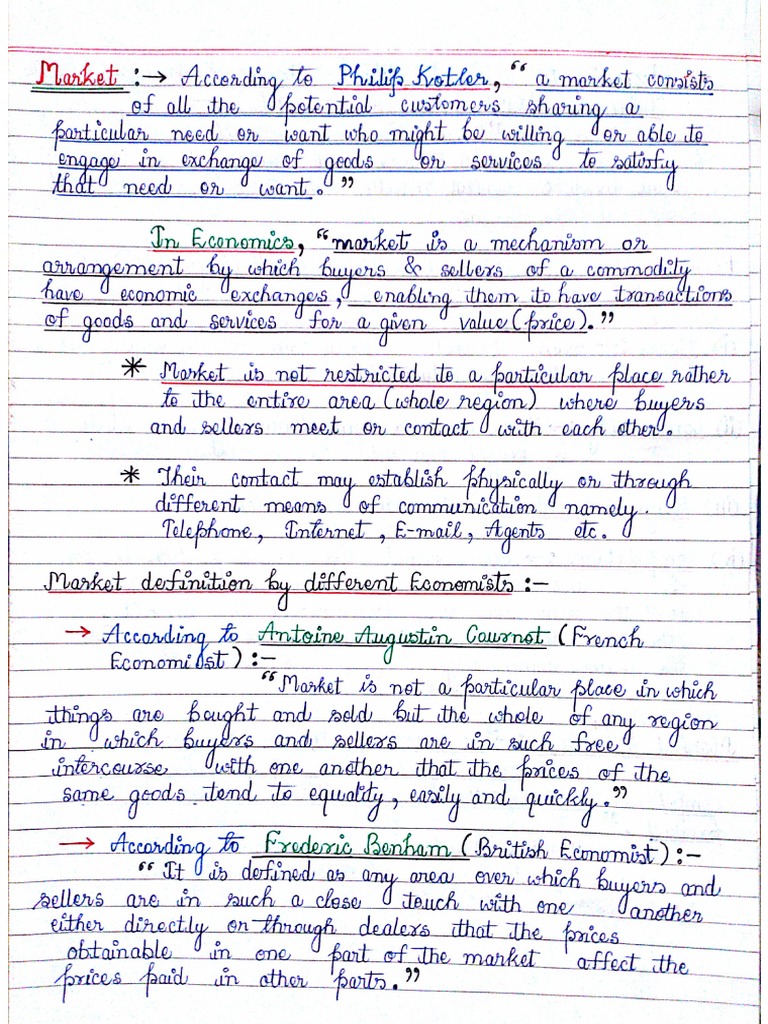 Market :→ According to Philip Kotler, “a market consists
of all the potential customers sharing a
particular need or want who might be willing or able to
engage in exchange of goods or services to satisfy
that need or want.”
In Economics, “market is a mechanism or
arrangement by which buyers & sellers of a commodity
have economic exchanges, enabling them to have transactions
of goods and services for a given value (price).”
* Market is not restricted to a particular place rather
to the entire area (whole region) where buyers
and sellers meet or contact with each other.
* Their contact may establish physically or through
different means of communication namely.
Telephone, Internet, E-mail, Agents etc.
Market definition by different Economists :-
→ According to Antoine Augustin Cournot (French
Economist) :-
“Market is not a particular place in which
things are bought and sold but the whole of any region
in which buyers and sellers are in such free
intercourse with one another that the prices of the
same goods tend to equality, easily and quickly.”
→ According to Frederic Benham (British Economist) :-
“It is defined as any area over which buyers and
sellers are in such a close touch with one another
either directly or through dealers that the prices
obtainable in one part of the market affect the
prices paid in other parts.”